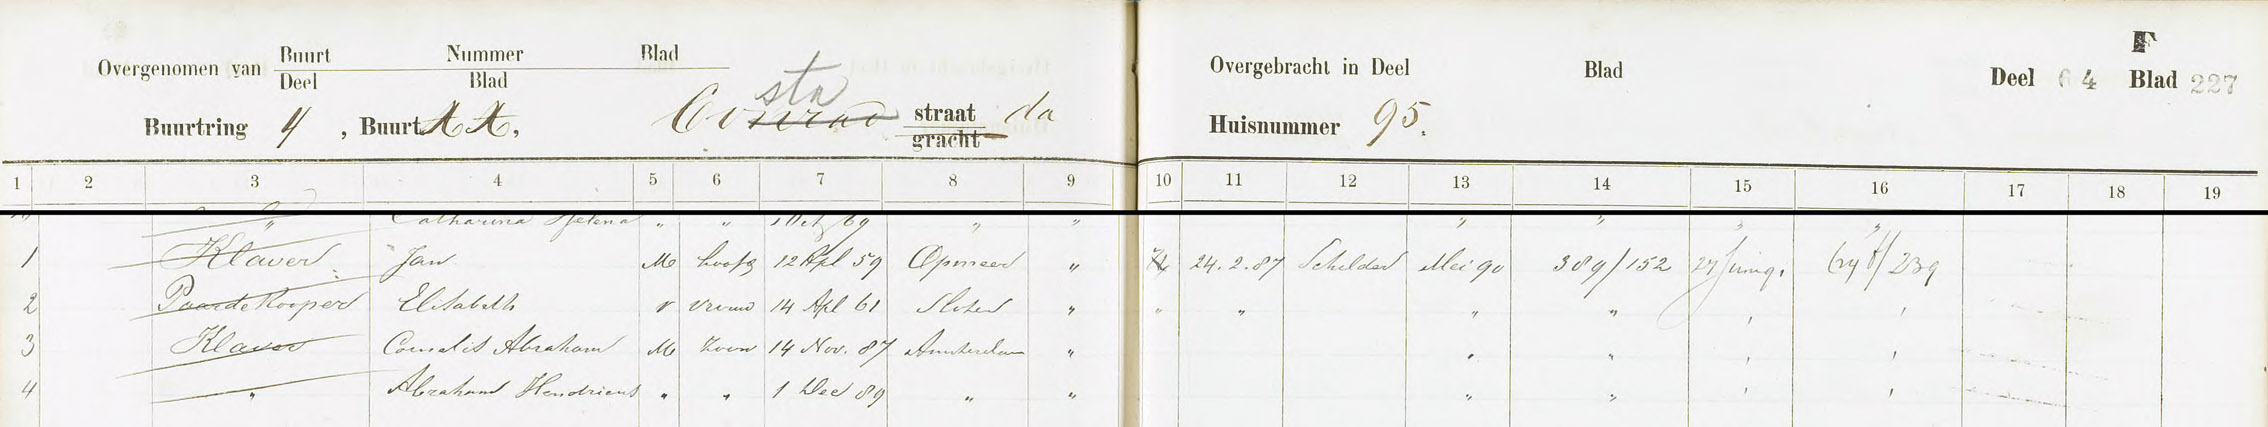 Overgenomen van Buurt Nummer Blad
Deel Blad
Overgebracht in Deel Blad Deel 64 F Blad 227
Buurtring 4, Buurt A A, Co sta straat da
gracht
Huisnummer 95.
1 2 3 4 5 6 7 8 9 10 11 12 13 14 15 16 17 18 19
" Catharina Helena " " 1 Oct 69 " " " " " "
1 Klaver Jan M hoofd 12 Apl 59 Opmeer " 24.2.87 Schilder Mei 90 389/152 239
2 Paardekooper Elisabeth v vrouw 14 Apl 61 Sloten " " " " " " "
3 Klaver Cornelis Abraham M Zoon 14 Nov. 87 Amsterdam " " " " "
4 " Abraham Hendricus " " 1 Dec 89 " " " " " "